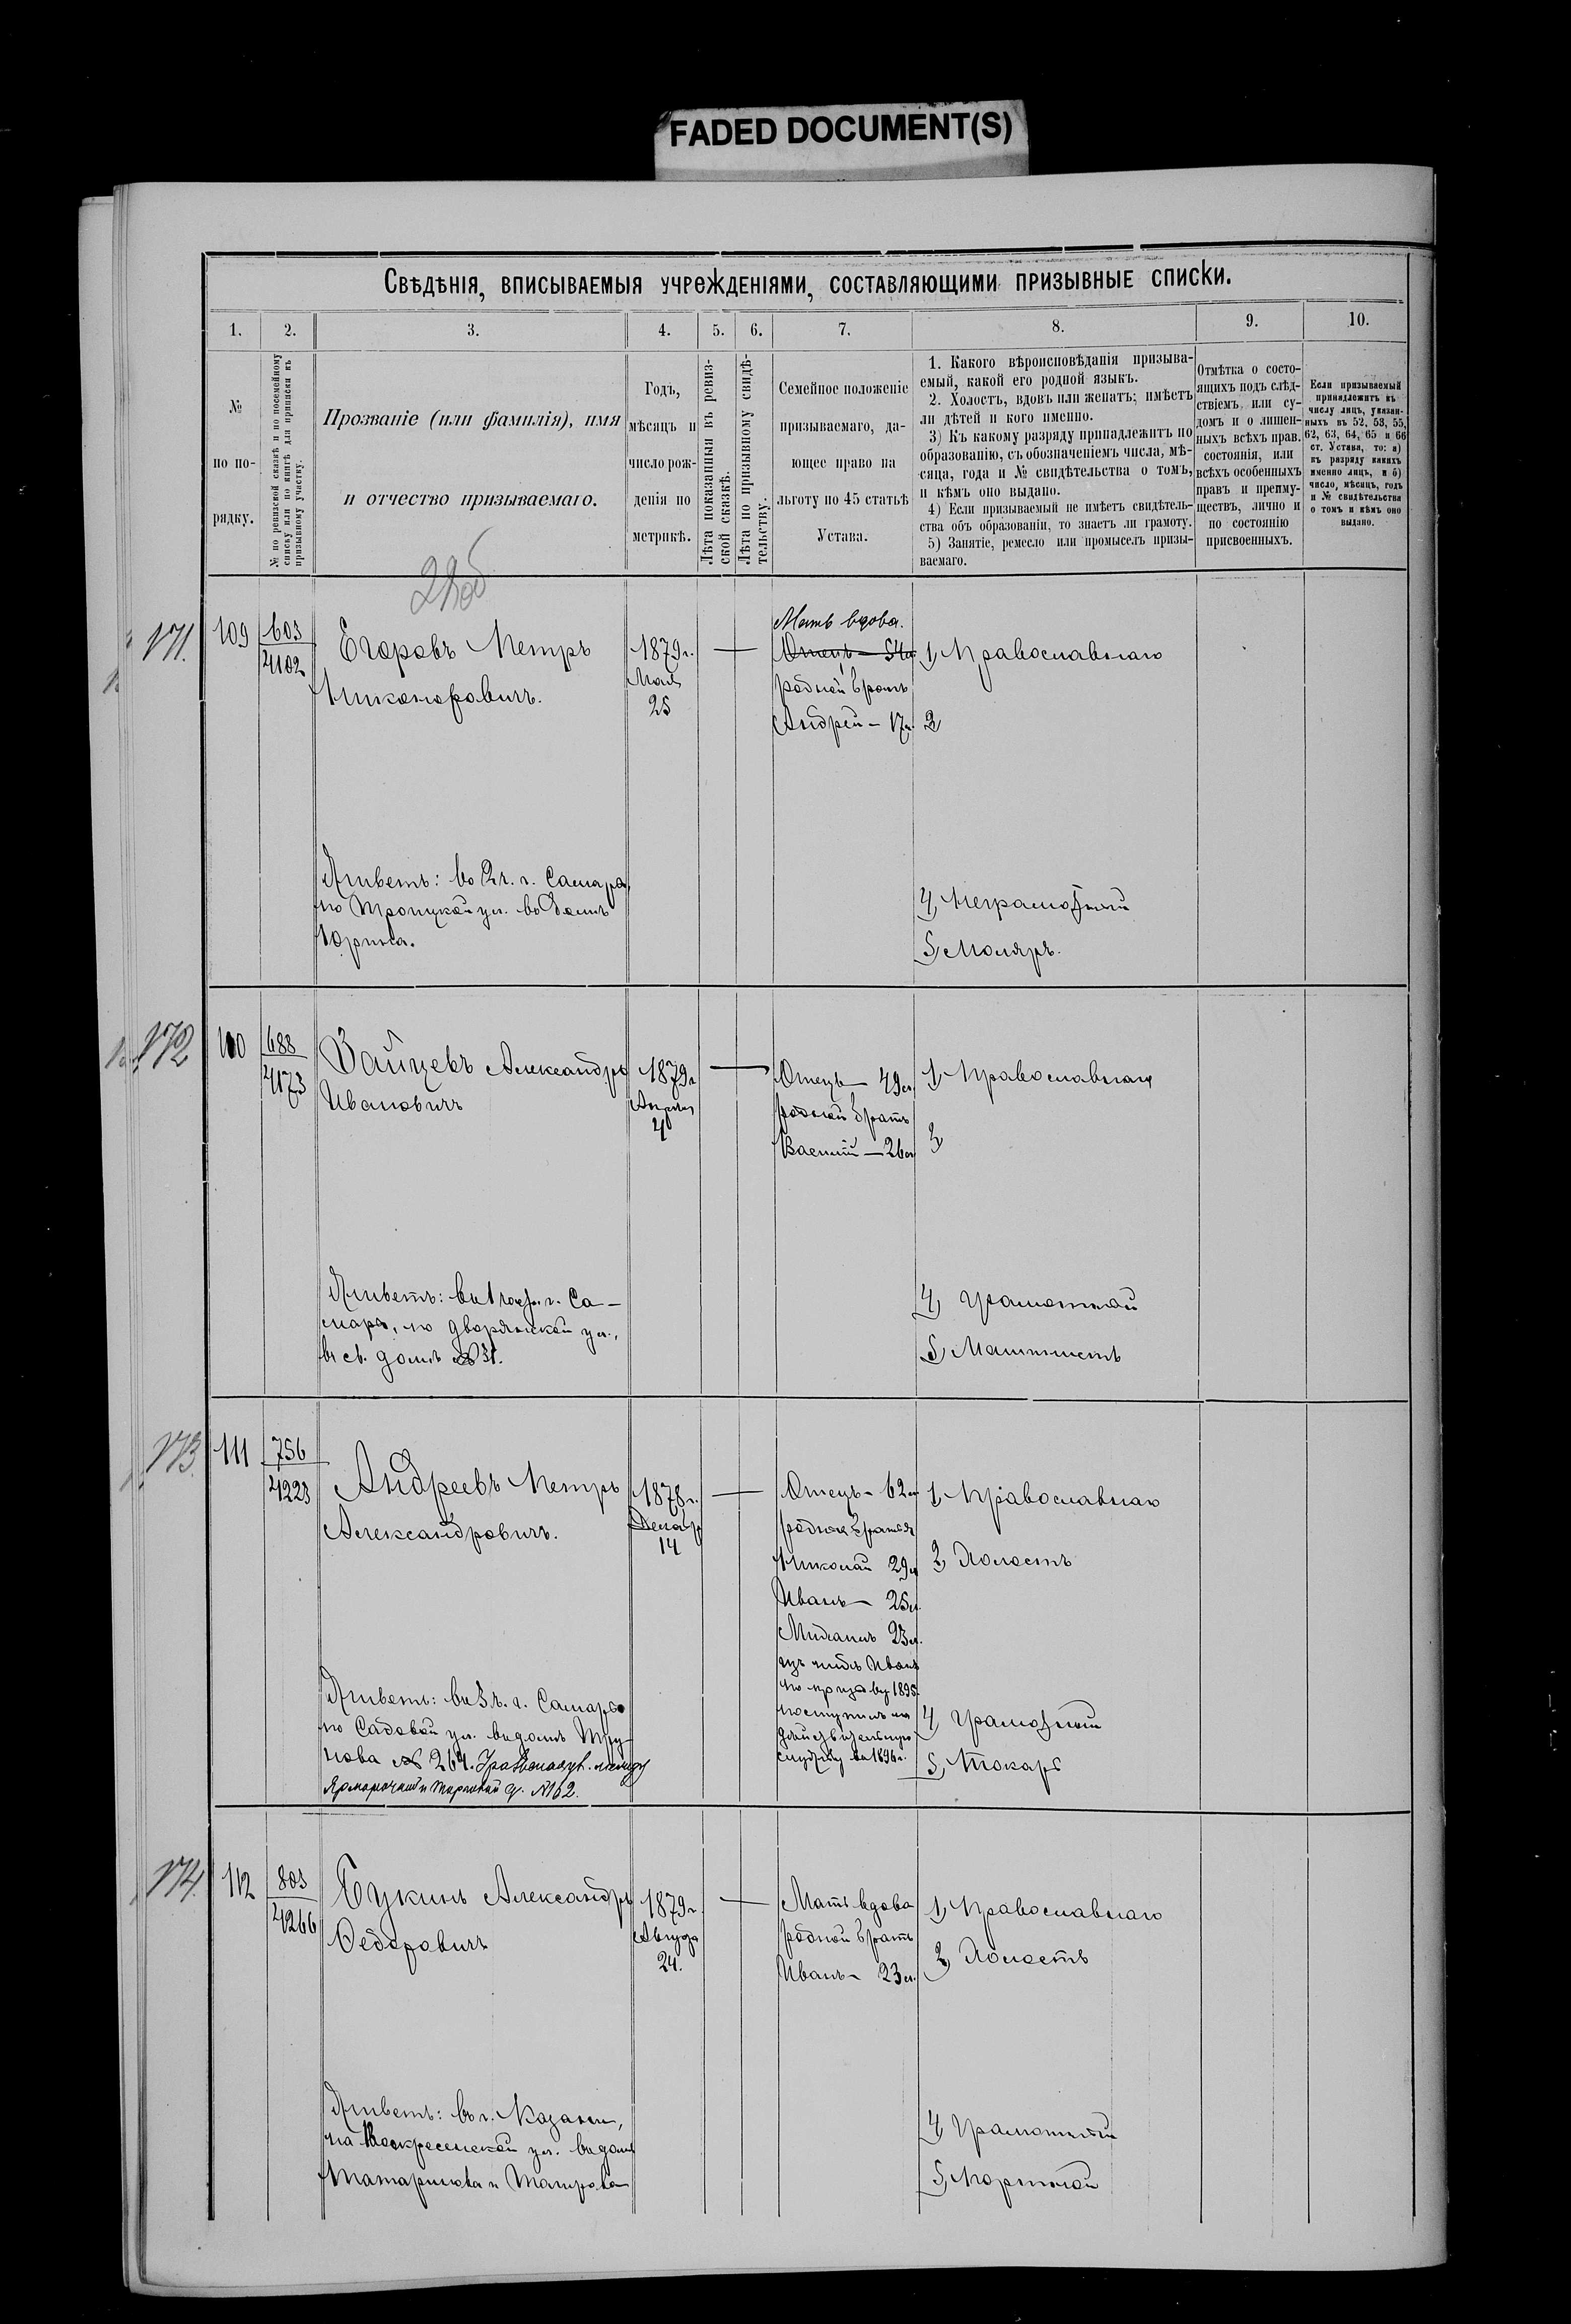 FADED DOCUMENT(S)
Свѣдѣнія, вписываемыя учрежденіями, составляющими призывные списки.
1. 2. 3. 4. 5. 6. 7. 8. 9. 10.
№
по по-
рядку.
№ по ревизской сказкѣ и по посемейному
списку или по книгѣ для приписки къ
призывному участку.
Прозваніе (или фамилія), имя
и отчество призываемаго.
Годъ,
мѣсяцъ и
число рож-
денія по
метрикѣ.
Лѣта показанныя въ ревиз-
ской сказкѣ.
Лѣта по призывному свидѣ-
тельству.
Семейное положеніе
призываемаго, да-
ющее право на
льготу по 45 статьѣ
Устава.
1. Какого вѣроисповѣданія призыва-
емый, какой его родной языкъ.
2. Холостъ, вдовъ или женатъ; имѣетъ
ли дѣтей и кого именно.
3) Къ какому разряду принадлежитъ по
образованію, съ обозначеніемъ числа, мѣ-
сяца, года и № свидѣтельства о томъ,
и кѣмъ оно выдано.
4) Если призываемый не имѣетъ свидѣтель-
ства объ образованіи, то знаетъ ли грамоту.
5) Занятіе, ремесло или промыселъ призы-
ваемаго.
Отмѣтка о состо-
ящихъ подъ слѣд-
ствіемъ или су-
домъ и о лишен-
ныхъ всѣхъ прав.
состоянія, или
всѣхъ особенныхъ
правъ и преиму-
ществъ, лично и
по состоянію
присвоенныхъ.
Если призываемый
принадлежитъ къ
числу лицъ, указан-
ныхъ въ 52, 53, 55,
62, 63, 64, 65 и 66
ст. Устава, то: а)
къ разряду какихъ
именно лицъ, и б)
число, мѣсяцъ, годъ
и № свидѣтельства
о томъ и кѣмъ оно
выдано.
171.
109
603
4102
Егоровъ Петръ
Никоноровичъ.
1879 г.
Мая
25
Мать вдова.
Отецъ — 54 л
родной братъ
Андрей — 17 л.
1, Православнаго
2
Живетъ: во 2 ч. г. Самара,
по Троицкой ул. въ домѣ
Юрина.
4, Неграмотный
5, Моляръ.
172
110
688
4173
Зайцевъ Александръ
Ивановичъ
1879 г
Апрѣля
4
Отецъ — 49 л
родной братъ
Василій — 26 л
1, Православнаго
2
Живетъ: въ 1 част. г. Са-
мара, по Дворянской ул.,
въ св. домѣ № 31.
4, Грамотной
5, Машинистъ
173.
111
756
4223
Андреевъ Петръ
Александровичъ.
1878 г.
Декабр
14
Отецъ — 62 л
родные братья
Николай 29 л
Иванъ — 25 л.
Михаилъ 23 л.
изъ нихъ Иванъ
по призыву 1895 г.
поступилъ на
дѣйствительную
службу въ 1896 г.
1, Православнаго
2, Холостъ
Живетъ: въ 3 ч. г. Самара
по Садовой ул. въ домѣ
№ 264. между
Ярморочной и Торговой д. № 62.
4, Грамотный
5, Токарь
174.
112
803
4266
Букинъ Александръ
Федоровичъ
1879 г.
Августа
24.
Мать вдова
родной братъ
Иванъ — 23 л.
1, Православнаго
2, Холостъ
Живетъ: въ г. Казани,
на Воскресенской ул. въ домѣ
Татаринова и
4, Грамотный
5, Портной